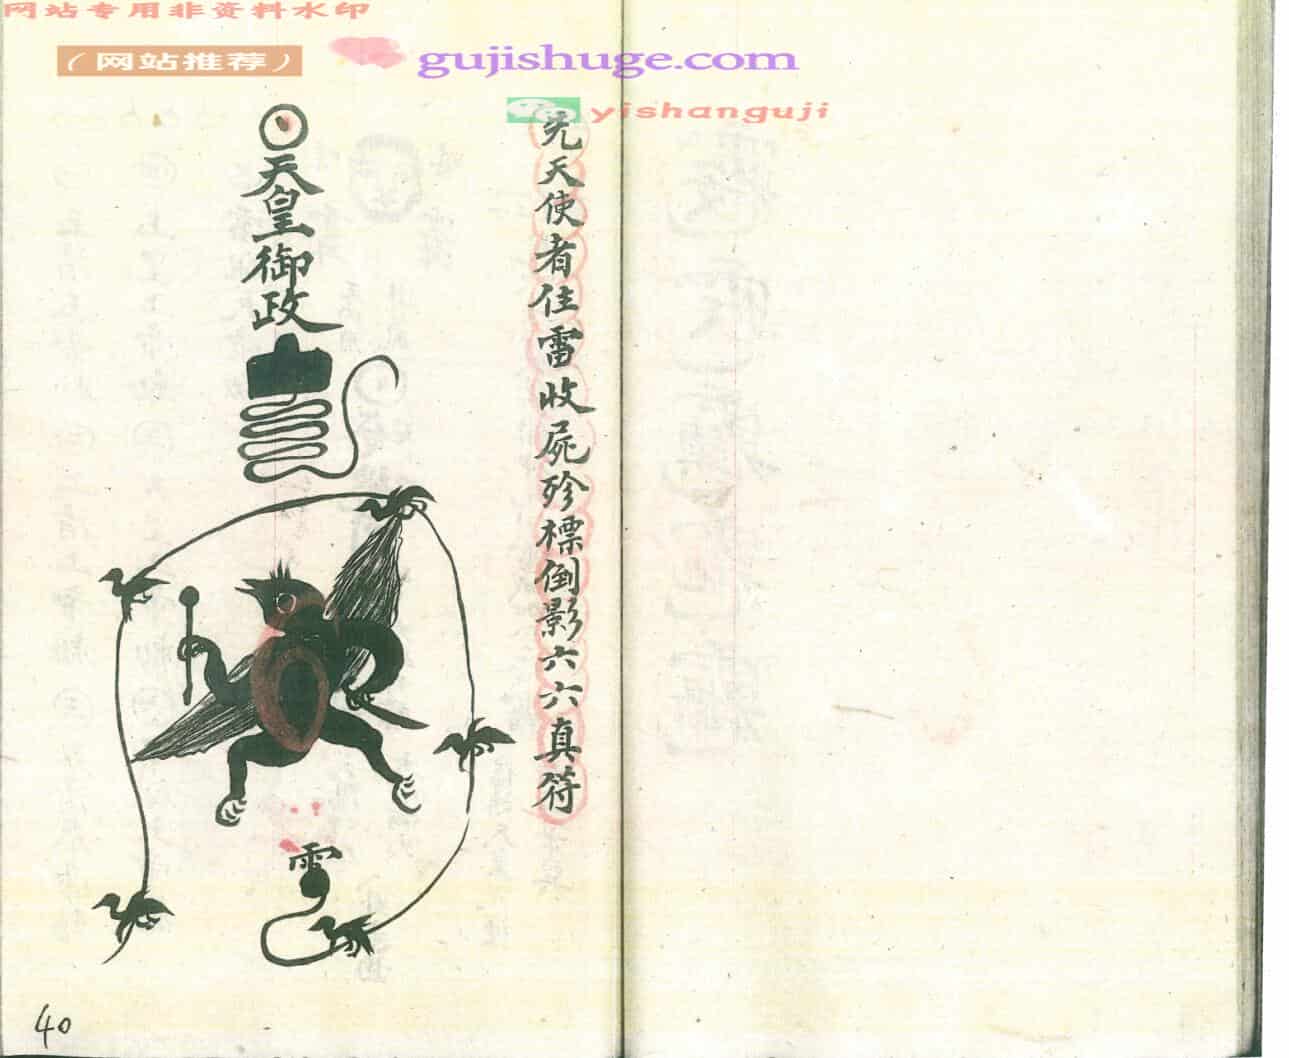 网站专用非资料水印
（网站推荐）
gujishuge.com
yishanguji
先天使者住雷收屍殄標倒影六六真符
天皇御政
雷
40